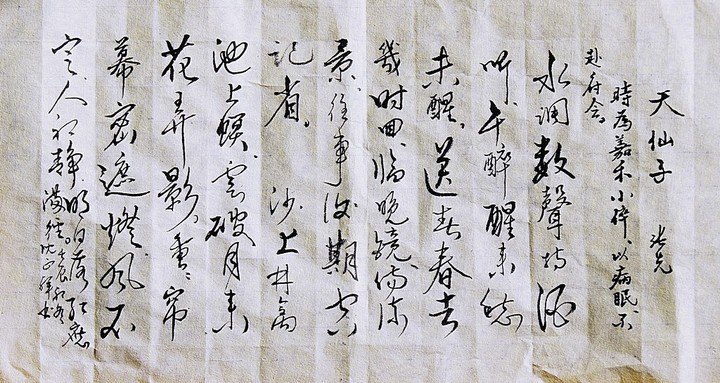 天仙子 张先
時為嘉禾小倅、以病眠、不
赴府会
水调數聲持酒
听、午醉醒来愁
未醒。送春春去
幾时回、临晚镜傷流
景、往事後期空
記省。沙上並禽
池上暝、雲破月来
花弄影、重重帘
幕密遮燈、風不
定、人初静、明日落红應
满徑。壬辰